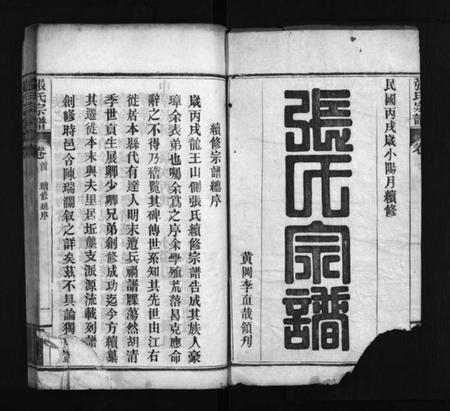 民國丙戌歲小陽月續修
張氏宗譜
黃岡李直哉領刊
續修宗譜總序
歲丙戌龍王山側張氏續修宗譜告成其族人豪
璋余表弟也囑余為之序余學殖荒落曷克應命
辭之不得乃稽覽其碑傳世系知其先世由江右
徙居本縣代有達人明末遭兵禍譜牒蕩然胡清
季世貢生展卿少卿兄弟創修成功迄今方續纂
其遷徙本末與夫里居坵墓支派源流載列譜
創修時邑令陳瑞瀾叙之詳矣茲不具論獨
張氏宗譜
卷首
續修總序
一